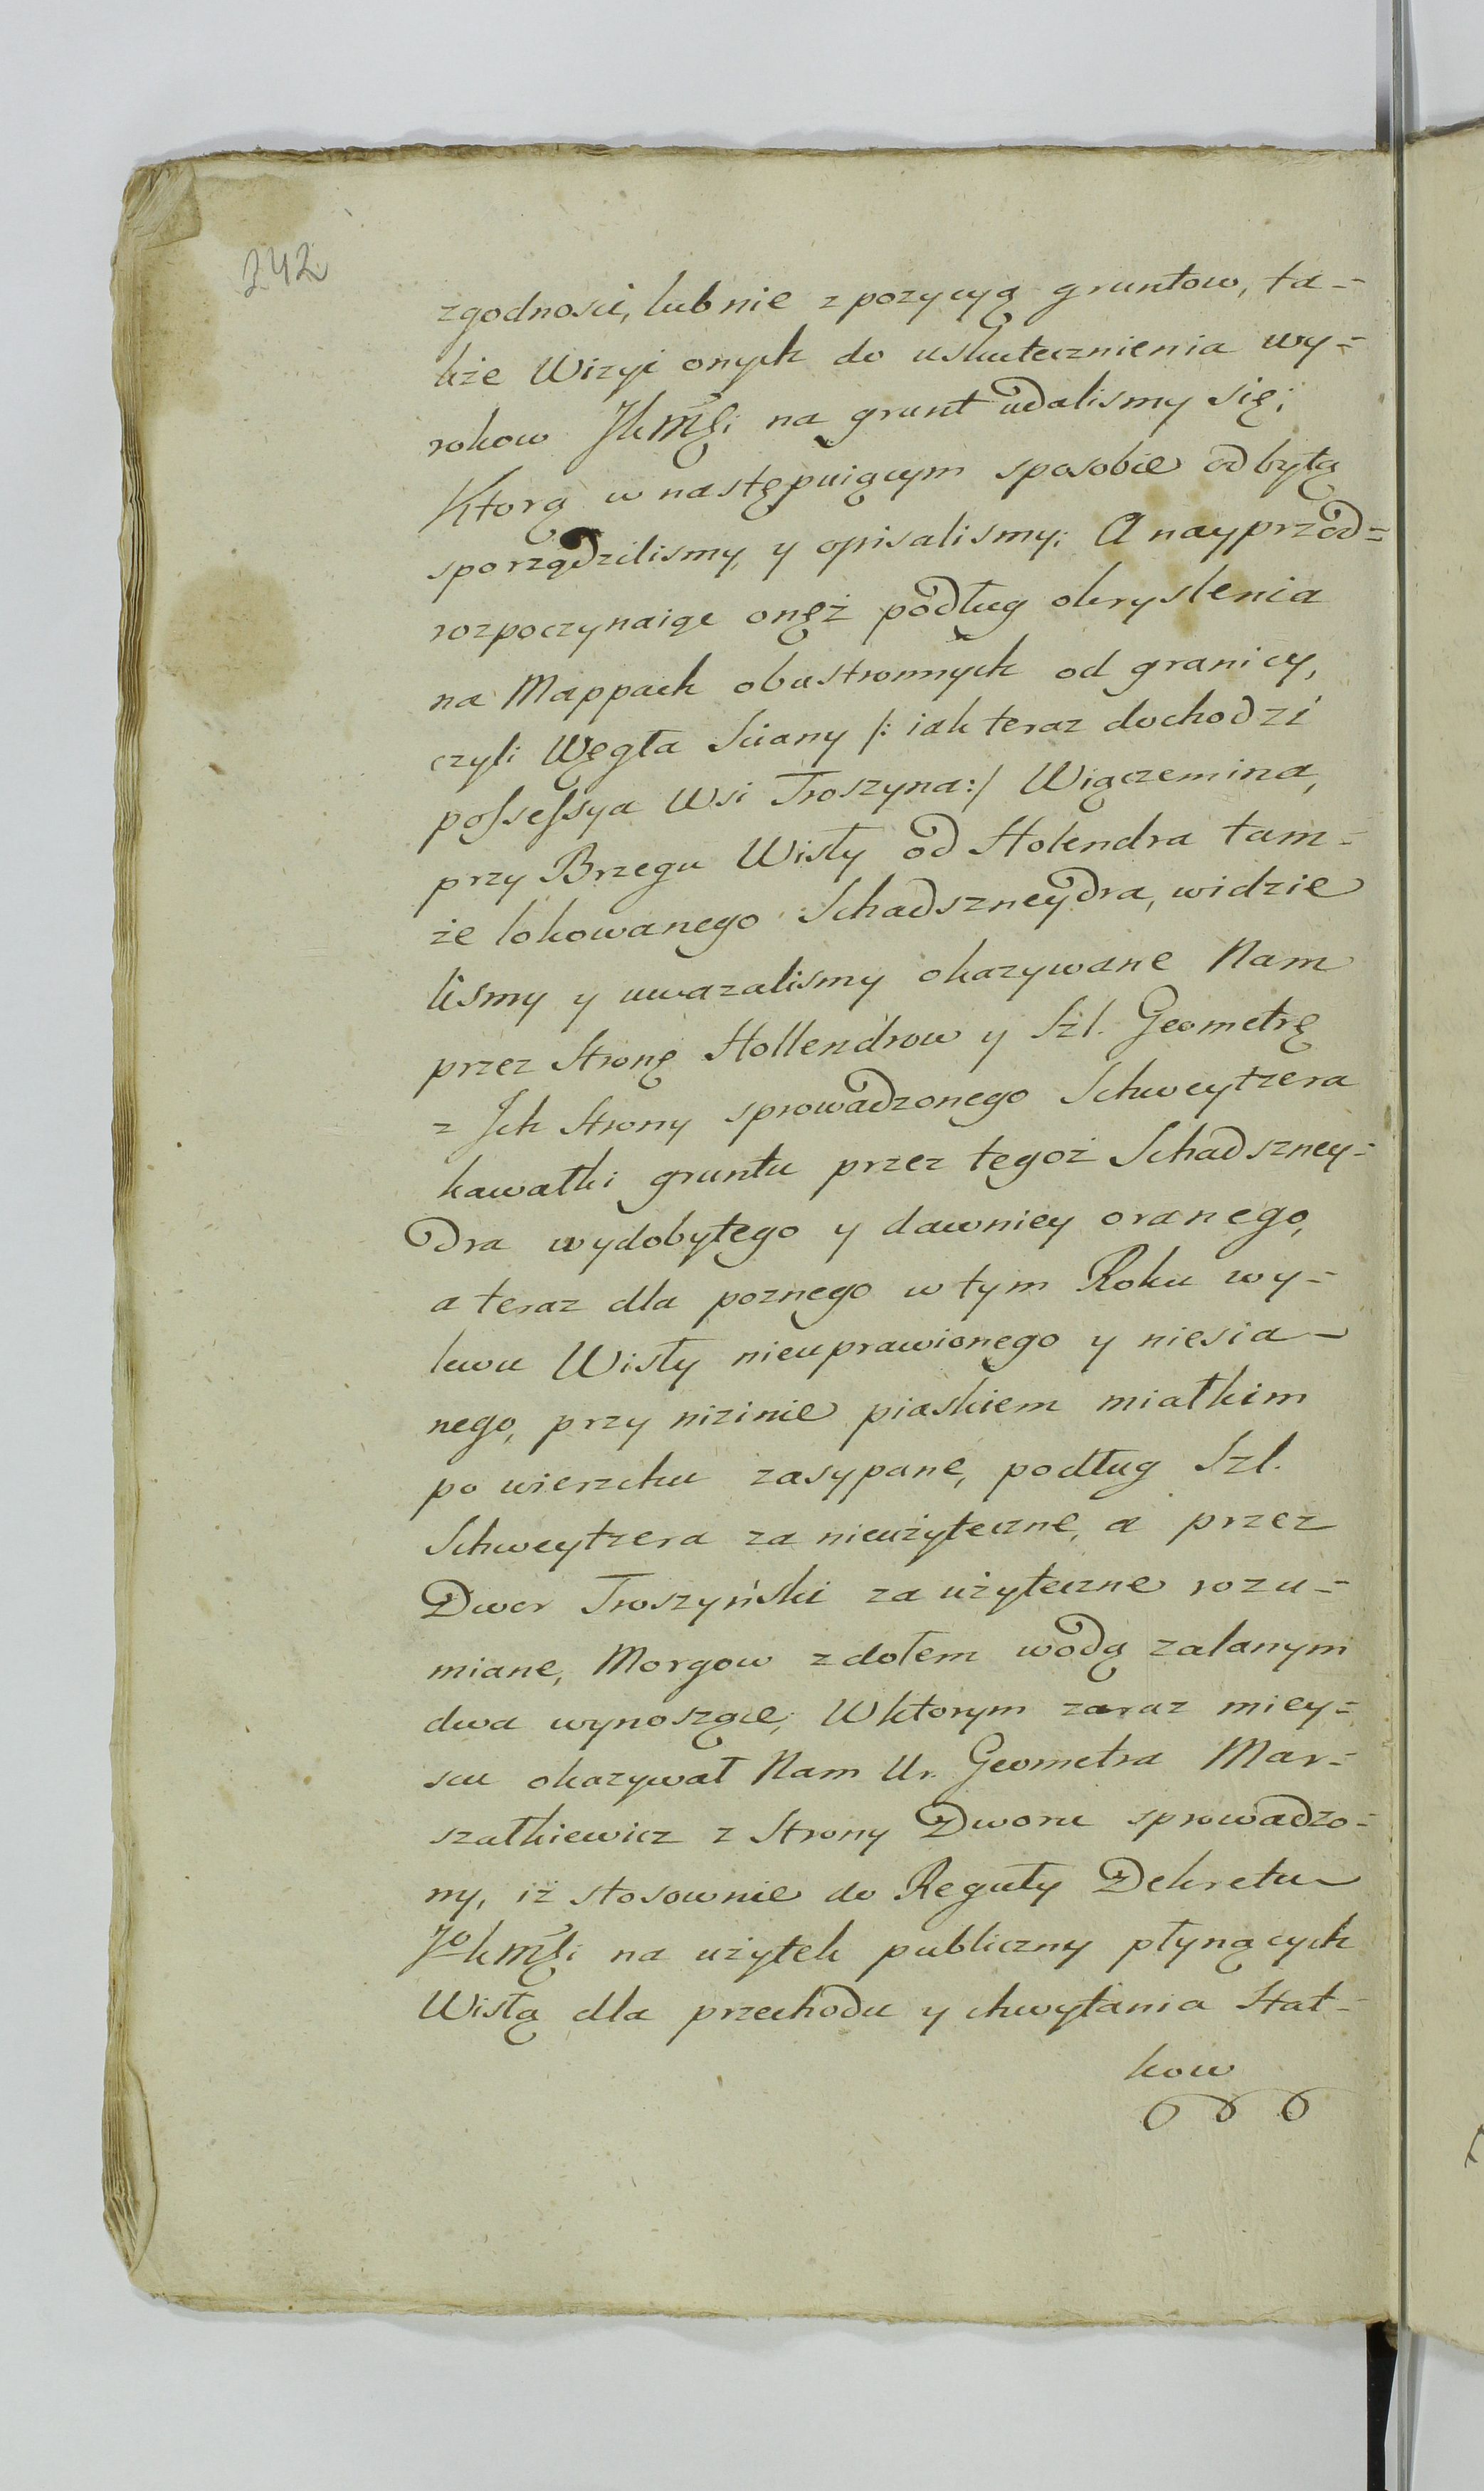 242
zgodnosci, lub nie z pozycyą gruntow, ta=
kże Wizyi onych do uskutecznienia wy=
rokow JkMści na grunt udalismy się;
Ktorą w następuiącym sposobie odbytą
sporządzilismy, y opisalismy; A nayprzod=
rozpoczynaiąc onęż podług okryslenia
na Mappach obustronnych od granicy,
czyli Węgła Sciany /: iak teraz dochodzi
possessya Wsi Troszyna :/ Wiączemina,
przy Brzegu Wisły od Holendra tam=
że lokowanego Schadszneydra, widzie
lismy y uwazalismy okazywane Nam
przez Stronę Hollendrow y Szl. Geometrę
z Ich Strony sprowadzonego Schweytzera
kawałki gruntu przez tegoż Schadszney=
dra wydobytego y dawniey oranego,
a teraz dla poznego w tym Roku wy=
lewu Wisły nieuprawionego y niesia=
nego, przy nizinie piaskiem miałkim
po wierzchu zasypane, podług Szl.
Schweytzera za nieużyteczne, a przez
Dwor Troszyński za użyteczne rozu=
miane, Morgow z dołem wodą zalanym
dwa wynoszące; W ktorym zaraz miey=
scu okazywał Nam Ur. Geometra Mar=
szałkiewicz z Strony Dworu sprowadzo=
ny, iż stosownie do Reguły Dekretu
JokMści na użytek publiczny płynących
Wisłą dla przechodu y chwytania Stat=
kow